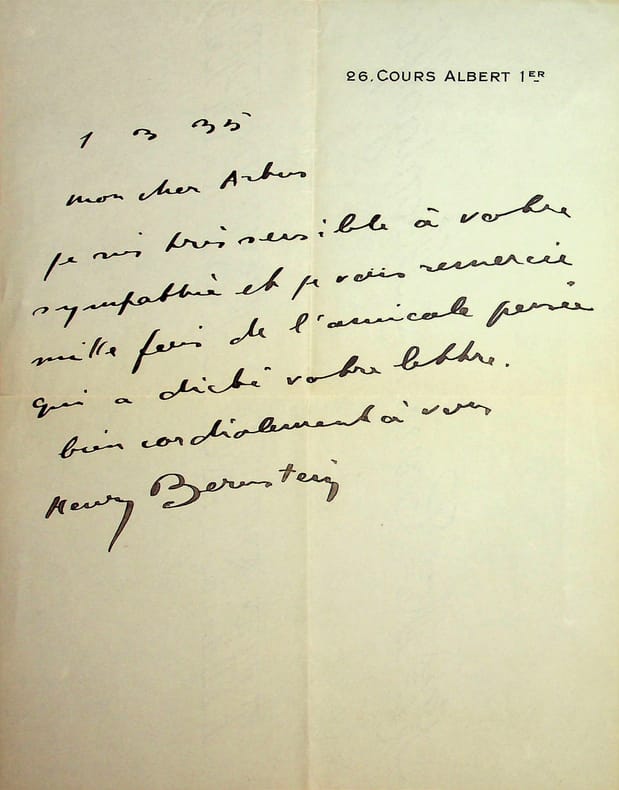 26, COURS ALBERT 1ER
1 3 35
mon cher Arbus
je suis très sensible à votre
sympathie et je vous remercie
mille fois de l'amicale pensée
qui a dicté votre lettre.
bien cordialement à vous
Henry Bernstein